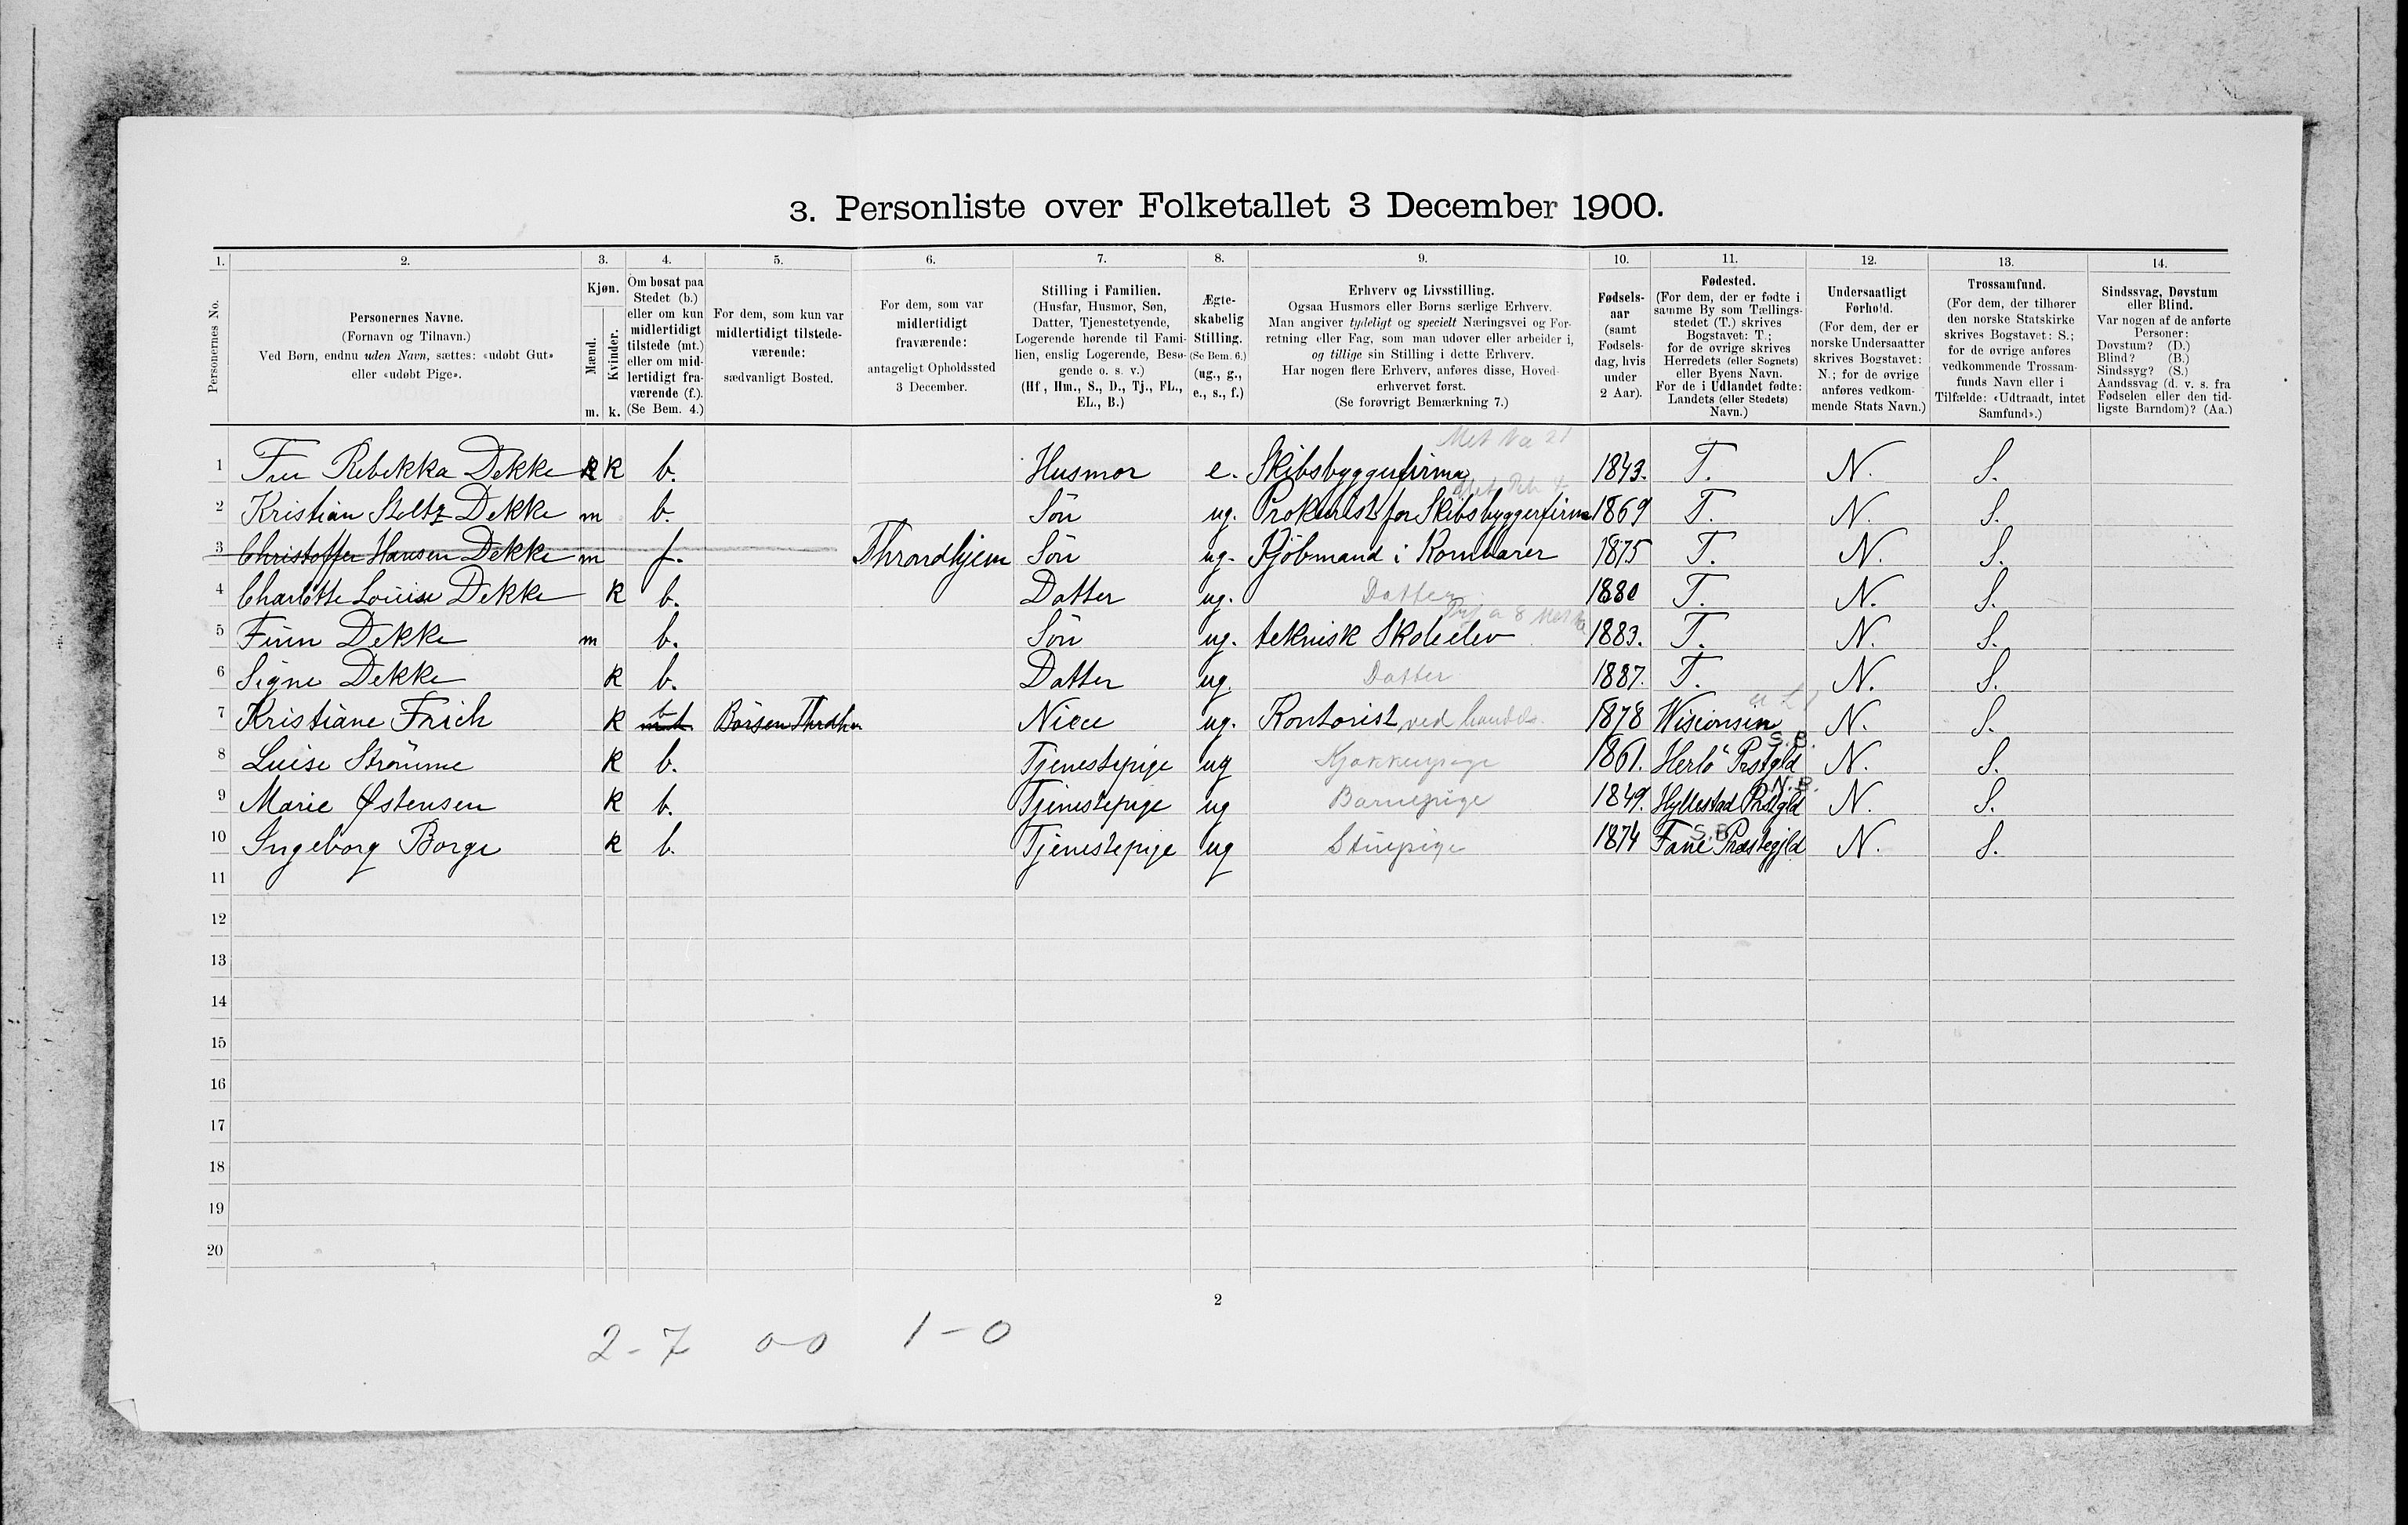 3. Personliste over Folketallet 3 December 1900.
1. 2. 3. 4. 5. 6. 7. 8. 9. 10. 11. 12. 13. 14.
Personernes No.
Personernes Navne.
(Fornavn og Tilnavn.)
Ved Børn, endnu uden Navn, sættes: «udøbt Gut»
eller «udøbt Pige».
Kjøn.
Mænd.
Kvinder.
m. k.
Om bosat paa
Stedet (b.)
eller om kun
midlertidigt
tilstede (mt.)
eller om mid-
lertidigt fra-
værende (f.).
(Se Bem. 4.)
For dem, som kun var
midlertidigt tilstede-
værende:
sædvanligt Bosted.
For dem, som var
midlertidigt
fraværende:
antageligt Opholdssted
3 December.
Stilling i Familien.
(Husfar, Husmor, Søn,
Datter, Tjenestetyende,
Logerende hørende til Fami-
lien, enslig Logerende, Besø-
gende o. s. v.)
(Hf, Hm., S., D., Tj., FL.,
EL., B.)
Ægte-
skabelig
Stilling.
(Se Bem. 6.)
(ug., g.,
e., s., f.)
Erhverv og Livsstilling.
Ogsaa Husmors eller Børns særlige Erhverv.
Man angiver tydeligt og specielt Næringsvei og For-
retning eller Fag, som man udøver eller arbeider i,
og tillige sin Stilling i dette Erhverv.
Har nogen flere Erhverv, anføres disse, Hoved-
erhvervet først.
(Se forøvrigt Bemærkning 7.)
Fødsels-
aar
(samt
Fødsels-
dag, hvis
under
2 Aar).
Fødested.
(For dem, der er fødte i
samme By som Tællings-
stedet (T.) skrives
Bogstavet: T.;
for de øvrige skrives
Herredets (eller Sognets)
eller Byens Navn.
For de i Udlandet fødte:
Landets (eller Stedets)
Navn.)
Undersaatligt
Forhold.
(For dem, der er
norske Undersaatter
skrives Bogstavet:
N.; for de øvrige
anføres vedkom-
mende Stats Navn.)
Trossamfund.
(For dem, der tilhører
den norske Statskirke
skrives Bogstavet: S.;
for de øvrige anføres
vedkommende Trossam-
funds Navn eller i
Tilfælde: «Udtraadt, intet
Samfund».)
Sindssvag, Døvstum
eller Blind.
Var nogen af de anførte
Personer:
Døvstum? (D.)
Blind? (B.)
Sindssyg? (S.)
Aandssvag (d. v. s. fra
Fødselen eller den tid-
ligste Barndom)? (Aa.)
1 Fru Rebekka Dekke k k b. Husmor e. Skibsbyggerfirma 1843. T. N. S.
2 Kristian Stoltz Dekke m b. Sön ug. Prokurist for Skibsbyggerfirma 1869 T. N. S.
3 Christoffer Hansen Dekke m f. Throndhjem Sön ug. Kjöbmand i Kornvarer 1875 T. N. S.
4 Charlotte Louise Dekke k b. Datter ug. Datter 1880 T. N. S.
5 Finn Dekke m b. Sön ug. teknisk Skoleelev 1883. T. N. S.
6 Signe Dekke k b. Datter ug. Datter 1887. T. N. S.
7 Kristiane Frich k mt b Börsen Thrdhm. Niece ug. Kontorist ved handel. 1878 Wisconsin N. S.
8 Luise Strömme k b. Tjenestepige ug Kjøkkenpige 1861. Herlö Prstgld S.B. N. S.
9 Marie Østensen k b. Tjenestepige ug Barnepige 1849. Hyllestad Prstgld N.B. N. S.
10 Ingeborg Borge k b. Tjenestepige ug Stuepige 1874 Fane Præstegjld S.B. N. S.
11
12
13
14
15
16
17
18
19
20
2
2-7 0-0 1-0